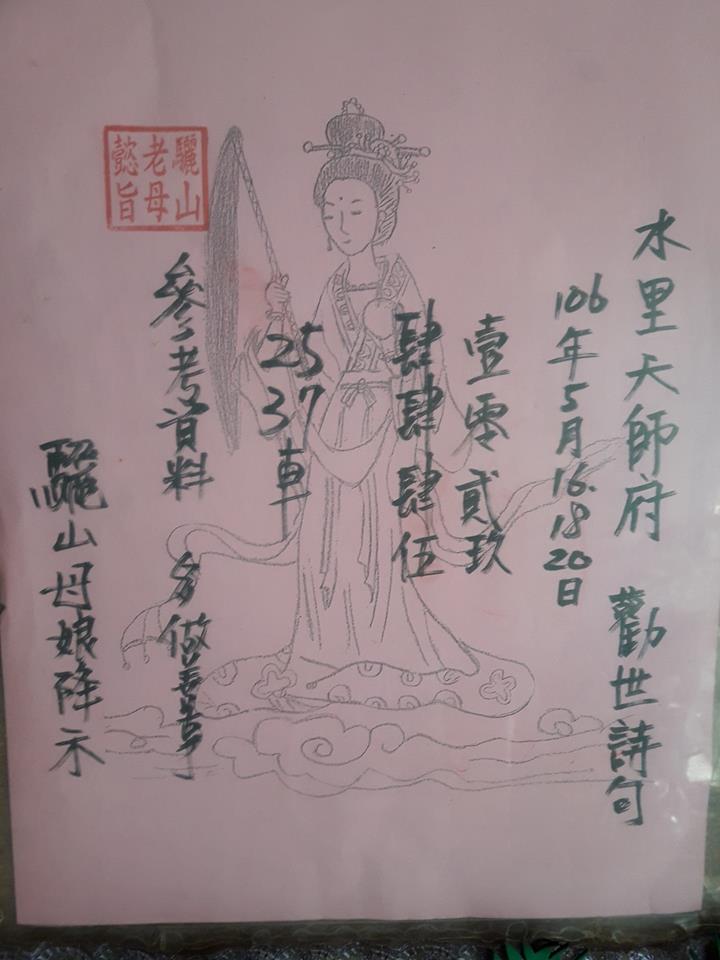 水里大師府 勸世詩句
106年5月16.18 20日
壹零貳玖
肆肆肆伍
25
37車
參考資料 多做善事
驪山母娘降示
驪山
老母
懿旨